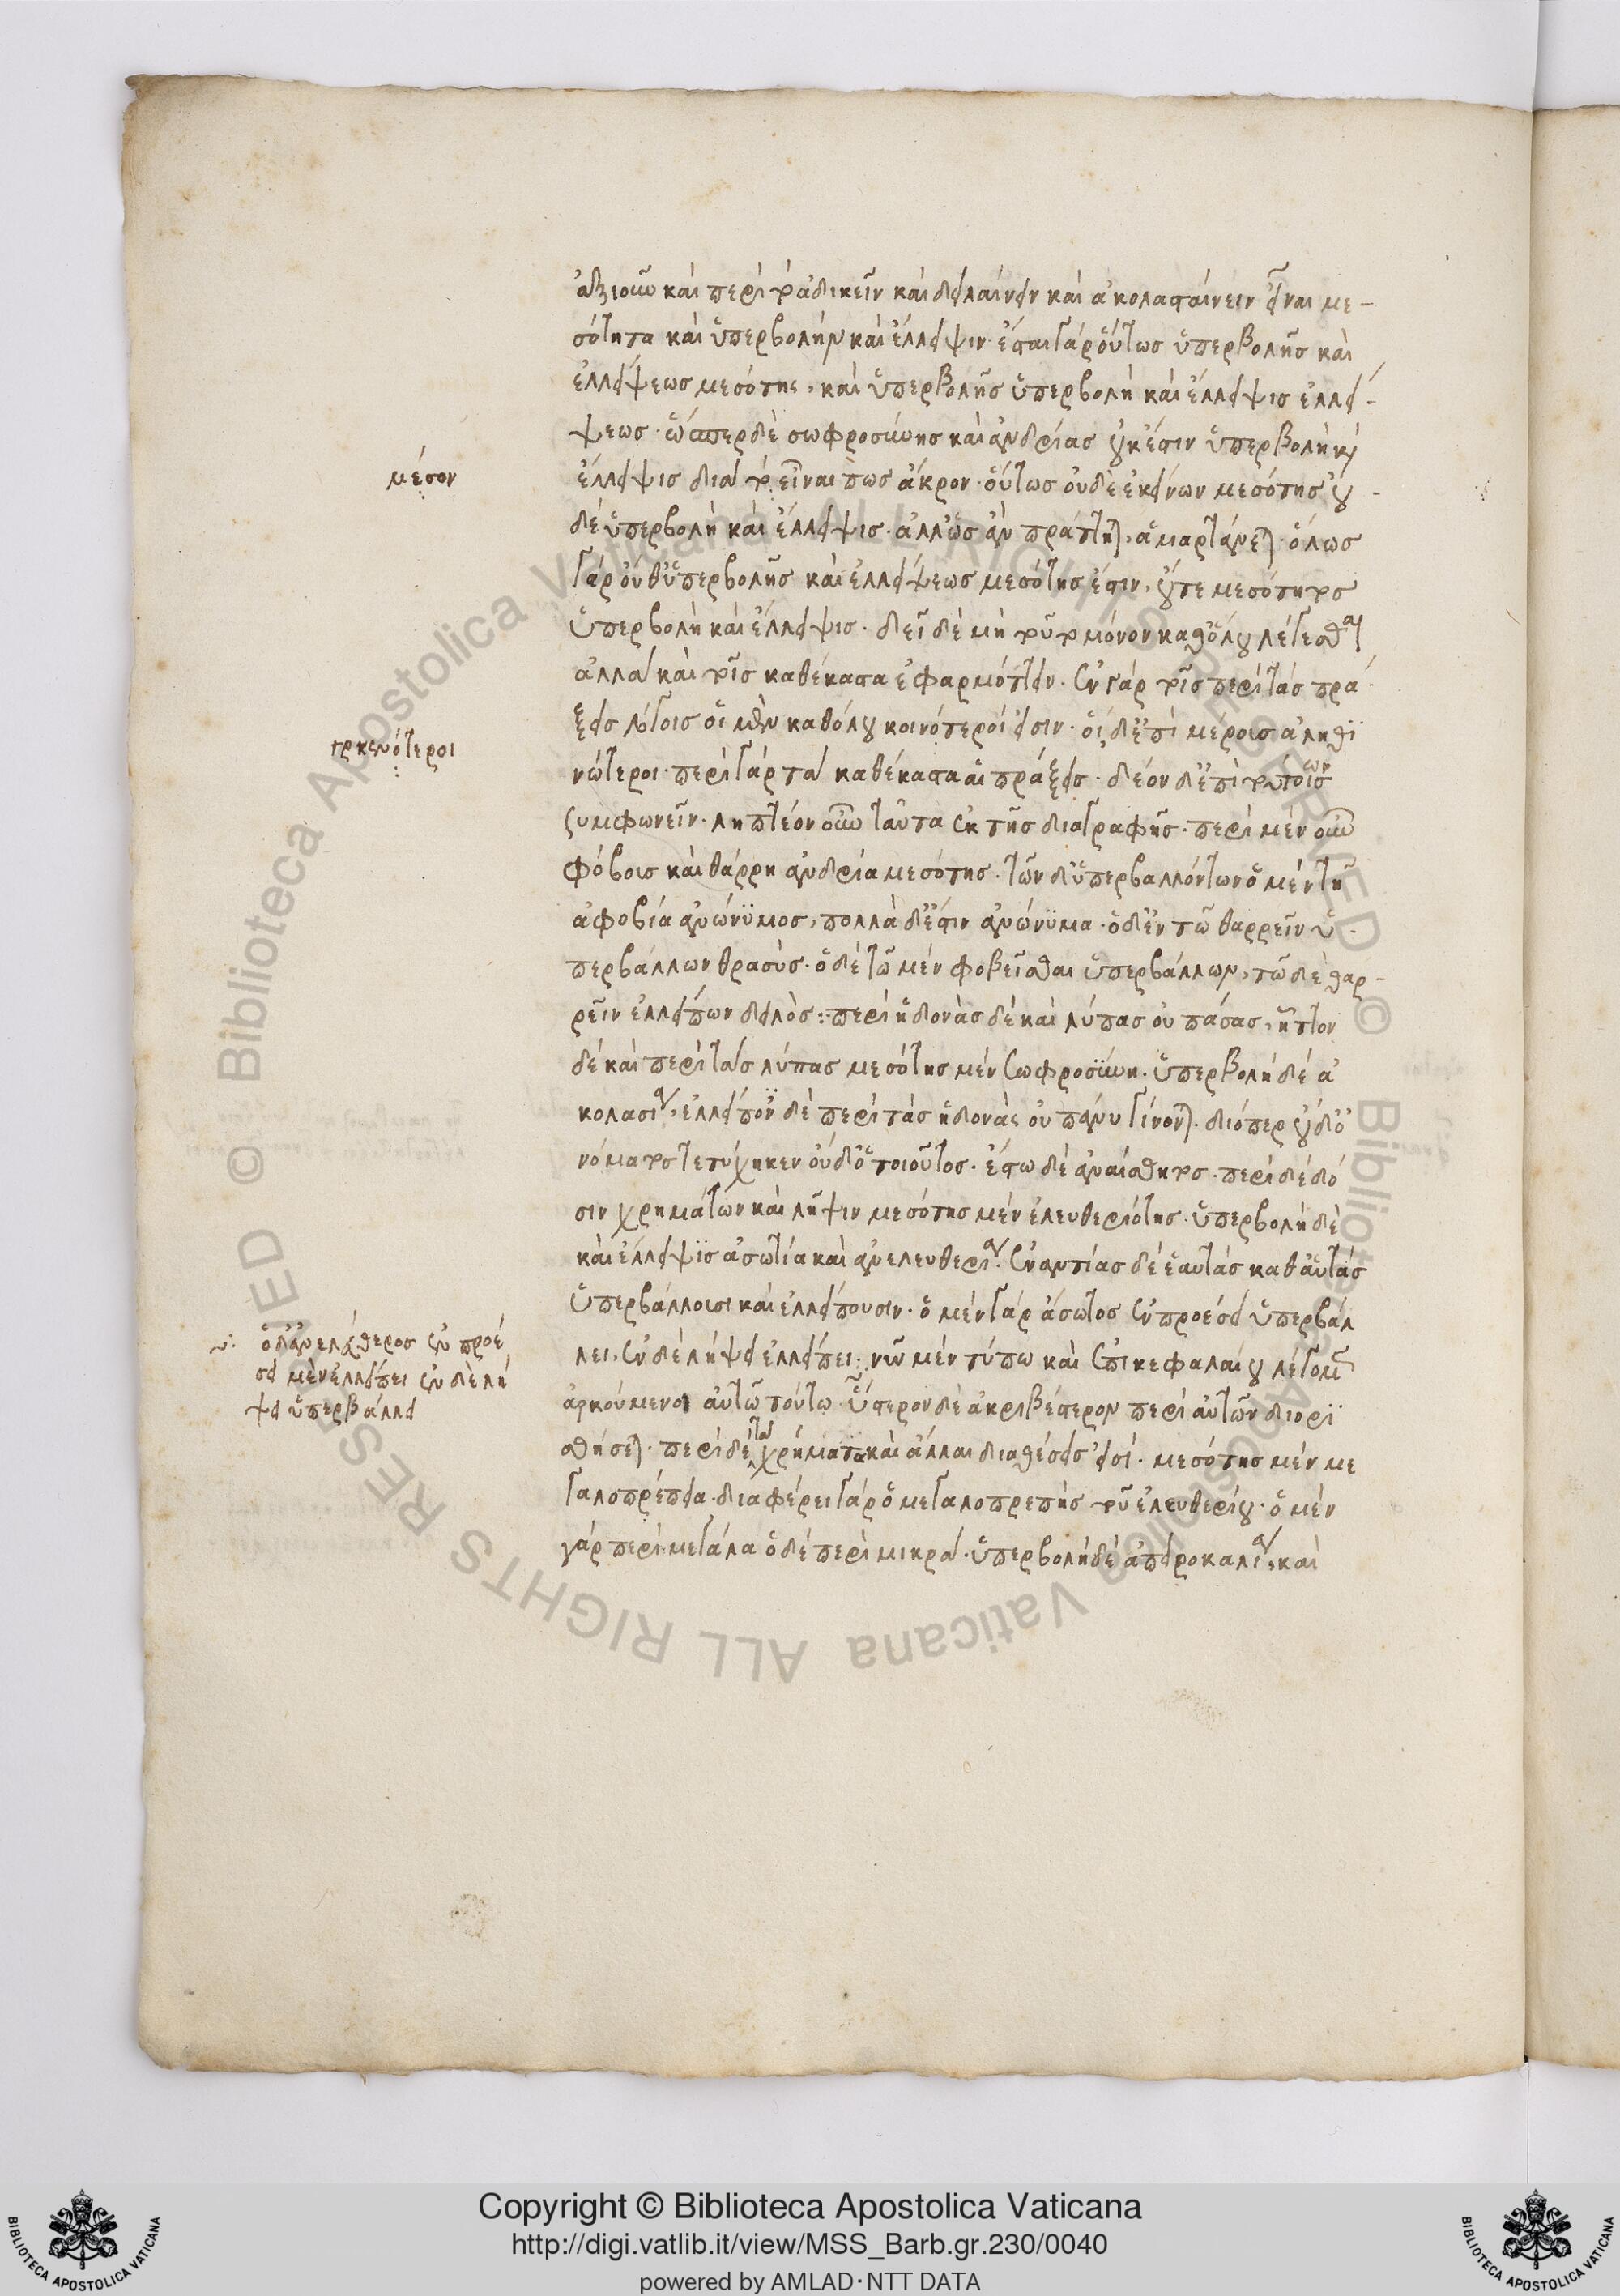 ἀξιοῦν καὶ περὶ τὸ ἀδικεῖν καὶ δειλαίνειν καὶ ἀκολασταίνειν εἶναι με-
σότητα καὶ ὑπερβολὴν καὶ ἔλλειψιν· ἔσται γὰρ οὕτως ὑπερβολῆς καὶ
ἐλλείψεως μεσότης, καὶ ὑπερβολῆς ὑπερβολὴ καὶ ἔλλειψις ἐλλεί-
ψεως· ὥσπερ δὲ σωφροσύνης καὶ ἀνδρίας οὐκ ἔστιν ὑπερβολὴ καὶ
μέσον
ἔλλειψις διὰ τὸ εἶναι πως ἄκρον· οὕτως οὐδὲ ἐκείνων μεσότης οὐ-
δὲ ὑπερβολὴ καὶ ἔλλειψις· ἀλλ' ὡς ἂν πράττηται, ἁμαρτάνεται· ὅλως
γὰρ οὔθ' ὑπερβολῆς καὶ ἐλλείψεως μεσότης ἐστιν, οὔτε μεσότητος
ὑπερβολὴ καὶ ἔλλειψις· δεῖ δὲ μὴ τοῦτο μόνον καθόλου λέγεσθαι
ἀλλὰ καὶ τοῖς καθέκαστα ἐφαρμόττειν· ἐν γὰρ τοῖς περὶ τὰς πρά-
ξεις λόγοις οἱ μὲν καθόλου κοινότεροί εἰσιν· οἱ δ' ἐπὶ μέρους ἀληθι
κενότεροι
νώτεροι· περὶ γὰρ τὰ καθέκαστα αἱ πράξεις· δέον δ' ἐπὶ τούτοις
ων
ξυμφωνεῖν· ληπτέον οὖν ταῦτα ἐκ τῆς διαγραφῆς· περὶ μὲν οὖν
φόβους καὶ θάρρη ἀνδρία μεσότης· τῶν δ' ὑπερβαλλόντων ὁ μὲν τῇ
ἀφοβία ἀνώνυμος, πολλὰ δ' ἐστὶν ἀνώνυμα· ὁ δ' ἐν τῷ θαρρεῖν ὑ-
περβάλλων θρασύς· ὁ δὲ τῷ μὲν φοβεῖσθαι ὑπερβάλλων, τῷ δὲ θαρ-
ρεῖν ἐλλείπων δειλός: περὶ ἡδονὰς δὲ καὶ λύπας οὐ πάσας, ἧττον
δὲ καὶ περὶ τὰς λύπας μεσότης μὲν σωφροσύνη· ὑπερβολὴ δὲ ἀ
κολασία, ἐλλείποντες δὲ περὶ τὰς ἡδονὰς οὐ πάνυ γίνονται· διόπερ οὐδ' ὀ
νόματος τετυχήκεν οὐδ' ὁ τοιοῦτος· ἔστω δὲ ἀναίσθητος· περὶ δὲ δό
σιν χρημάτων καὶ λῆψιν μεσότης μὲν ἐλευθεριότης· ὑπερβολὴ δὲ
καὶ ἔλλειψις ἀσωτία καὶ ἀνελευθερία· ἐναντίας δὲ ἑαυτάς καθ' αὑτάς
ὑπερβάλλουσι καὶ ἐλλείπουσιν· ὁ μὲν γὰρ ἄσωτος ἐν προέσει ὑπερβάλ
ὁ δ' ἀνελεύθερος ἐν προέ
σει μὲν ἐλλείπει ἐν δὲ λή
ψει ὑπερβάλλει
λει, ἐν δὲ λήψει ἐλλείπει: νῦν μὲν τύπω καὶ ἐπὶ κεφαλαίου λέγομεν
ἀρκούμενοι αὐτῷ τούτω· ὕστερον δὲ ἀκριβέστερον περὶ αὐτῶν διορι
σθήσεται· περὶ δὲ τὰ χρήματα καὶ ἄλλαι διαθέσεις εἰσί· μεσότης μὲν με
γαλοπρέπεια· διαφέρει γὰρ ὁ μεγαλοπρεπὴς τοῦ ἐλευθερίου· ὁ μὲν
γὰρ περὶ μεγάλα ὁ δὲ περὶ μικρά· ὑπερβολὴ δὲ ἀπειροκαλία, καὶ
Copyright © Biblioteca Apostolica Vaticana
http://digi.vatlib.it/view/MSS_Barb.gr.230/0040
powered by AMLAD·NTT DATA
BIBLIOTECA APOSTOLICA VATICANA
BIBLIOTECA APOSTOLICA VATICANA
© Biblioteca Apostolica Vaticana ALL RIGHTS RESERVED © Biblioteca Apostolica Vaticana ALL RIGHTS RESERVED